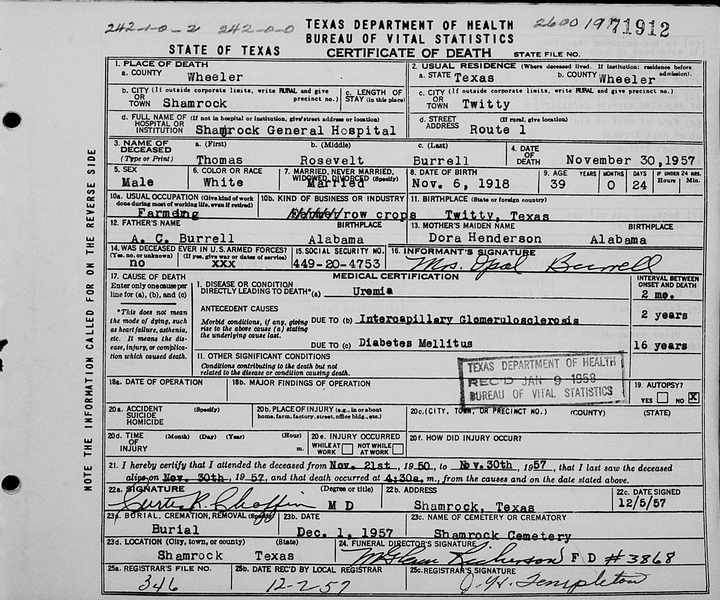 242-1-0-2 242-0-0 TEXAS DEPARTMENT OF HEALTH 2600 19 71912
BUREAU OF VITAL STATISTICS
STATE OF TEXAS CERTIFICATE OF DEATH STATE FILE NO.
1. PLACE OF DEATH
a. COUNTY Wheeler
2. USUAL RESIDENCE (Where deceased lived. If institution: residence before admission).
a. STATE Texas b. COUNTY Wheeler
b. CITY (If outside corporate limits, write RURAL and give precinct no.)
OR TOWN Shamrock
c. LENGTH OF STAY (in this place)
c. CITY (If outside corporate limits, write RURAL and give precinct no.)
OR TOWN Twitty
d. FULL NAME OF (If not in hospital or institution, give street address or location)
HOSPITAL OR INSTITUTION Shamrock General Hospital
d. STREET ADDRESS (If rural, give location)
Route 1
3. NAME OF DECEASED (Type or Print)
a. (First) b. (Middle) c. (Last)
Thomas Rosevelt Burrell
4. DATE OF DEATH November 30,1957
5. SEX
Male
6. COLOR OR RACE
White
7. MARRIED, NEVER MARRIED, WIDOWED, DIVORCED (Specify)
Married
8. DATE OF BIRTH
Nov. 6, 1918
9. AGE YEARS MONTHS DAYS IF UNDER 24 HRS. Hours Min.
39 0 24
10a. USUAL OCCUPATION (Give kind of work done during most of working life, even if retired)
Farming
10b. KIND OF BUSINESS OR INDUSTRY
row crops
11. BIRTHPLACE (State or foreign country)
Twitty, Texas
12. FATHER'S NAME BIRTHPLACE
A. C. Burrell Alabama
13. MOTHER'S MAIDEN NAME BIRTHPLACE
Dora Henderson Alabama
14. WAS DECEASED EVER IN U.S. ARMED FORCES?
(Yes, no, or unknown) (If yes, give war or dates of service)
no xxx
15. SOCIAL SECURITY NO.
449-20-4753
16. INFORMANT'S SIGNATURE
Mrs. Opal Burrell
17. CAUSE OF DEATH
Enter only one cause per line for (a), (b), and (c)
*This does not mean the mode of dying, such as heart failure, asthenia, etc. It means the disease, injury, or complication which caused death.
MEDICAL CERTIFICATION INTERVAL BETWEEN ONSET AND DEATH
I. DISEASE OR CONDITION DIRECTLY LEADING TO DEATH*(a) Uremia 2 mo.
ANTECEDENT CAUSES
Morbid conditions, if any, giving rise to the above cause (a) stating the underlying cause last.
DUE TO (b) Intercapillary Glomerulosclerosis 2 years
DUE TO (c) Diabetes Mellitus 16 years
II. OTHER SIGNIFICANT CONDITIONS
Conditions contributing to the death but not related to the disease or condition causing death.
TEXAS DEPARTMENT OF HEALTH
REC'D JAN 9 1958
BUREAU OF VITAL STATISTICS
18a. DATE OF OPERATION
18b. MAJOR FINDINGS OF OPERATION
19. AUTOPSY?
YES NO X
20a. ACCIDENT SUICIDE HOMICIDE (Specify)
20b. PLACE OF INJURY (e.g., in or about home, farm, factory, street, office bldg., etc.)
20c. (CITY, TOWN, OR PRECINCT NO.) (COUNTY) (STATE)
20d. TIME OF INJURY (Month) (Day) (Year) (Hour) m.
20e. INJURY OCCURRED
WHILE AT WORK NOT WHILE AT WORK
20f. HOW DID INJURY OCCUR?
21. I hereby certify that I attended the deceased from Nov. 21st, 1950, to Nov. 30th 1957, that I last saw the deceased
alive on Nov. 30th, 1957, and that death occurred at 4:30a.m., from the causes and on the date stated above.
22a. SIGNATURE (Degree or title)
Curtis R. Chaffin M D
22b. ADDRESS
Shamrock, Texas
22c. DATE SIGNED
12/5/57
23a. BURIAL, CREMATION, REMOVAL (Specify)
Burial
23b. DATE
Dec. 1, 1957
23c. NAME OF CEMETERY OR CREMATORY
Shamrock Cemetery
23d. LOCATION (City, town, or county) (State)
Shamrock Texas
24. FUNERAL DIRECTOR'S SIGNATURE
Richerson F D #3868
25a. REGISTRAR'S FILE NO.
346
25b. DATE REC'D BY LOCAL REGISTRAR
12-2-57
25c. REGISTRAR'S SIGNATURE
Templeton
NOTE THE INFORMATION CALLED FOR ON THE REVERSE SIDE